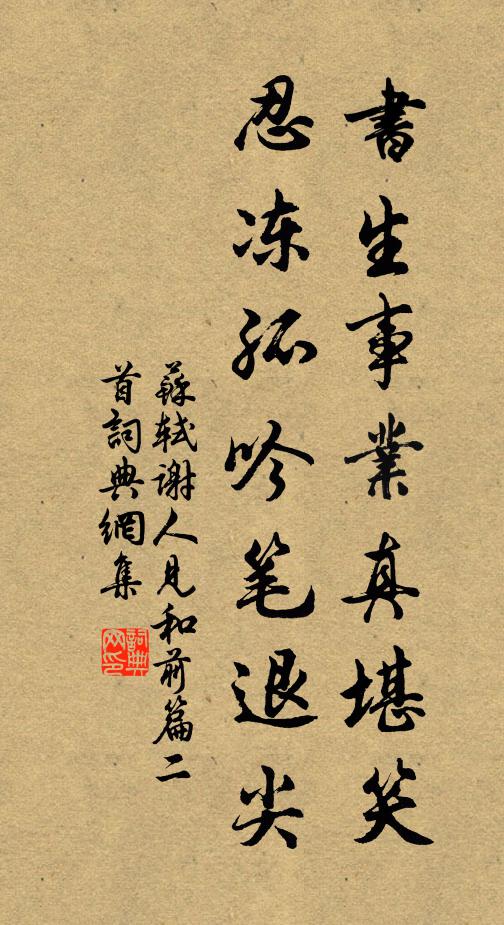 書生事業真堪笑
忍冻孤吟笔退尖
蘇軾謝人見和前篇二
首詞典網集
詞典
网印